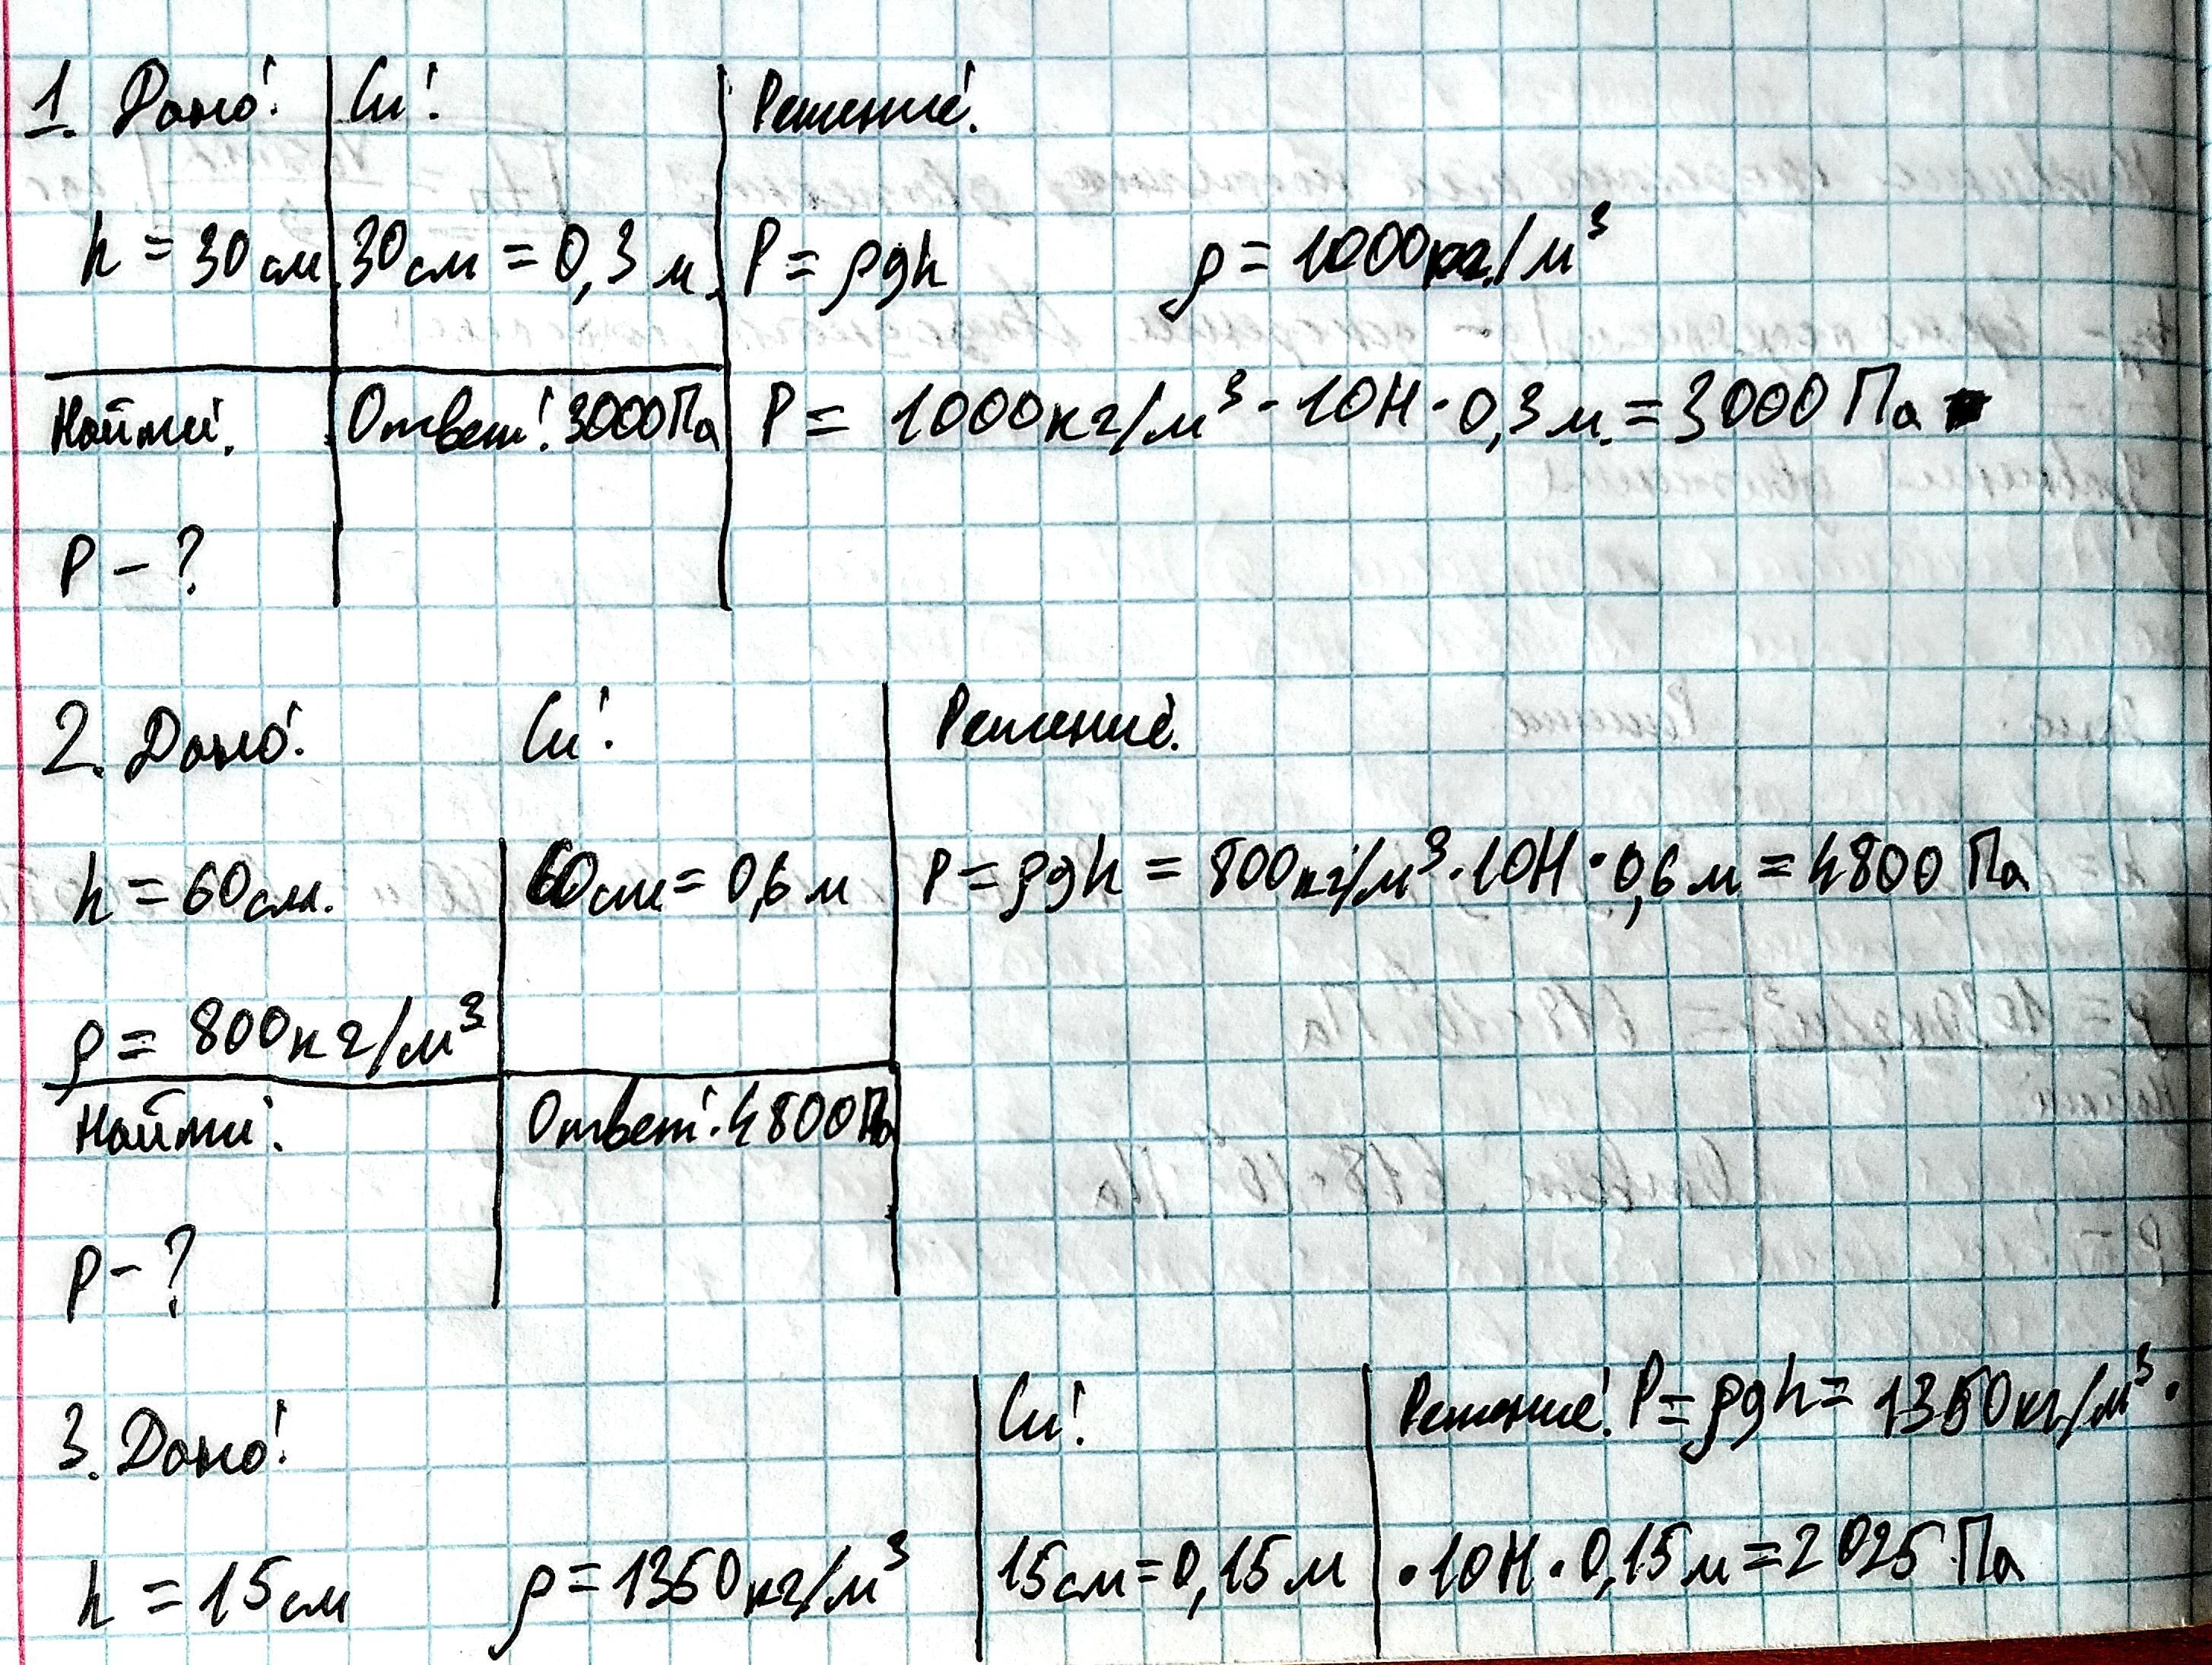 1. Дано: Си: Решение:
h = 30 см 30 см = 0,3 м. P = ρgh ρ = 1000 кг/м³
Найти: Ответ: 3000 Па P = 1000 кг/м³ · 10Н · 0,3 м. = 3000 Па
P - ?
2. Дано: Си: Решение:
h = 60 см. 60 см = 0,6 м P = ρgh = 800 кг/м³ · 10Н · 0,6 м = 4800 Па
ρ = 800 кг/м³
Найти: Ответ: 4800 Па
P - ?
3. Дано: Си: Решение: P = ρgh = 1350 кг/м³ ·
h = 15 см ρ = 1350 кг/м³ 15 см = 0,15 м · 10Н · 0,15 м = 2025 Па